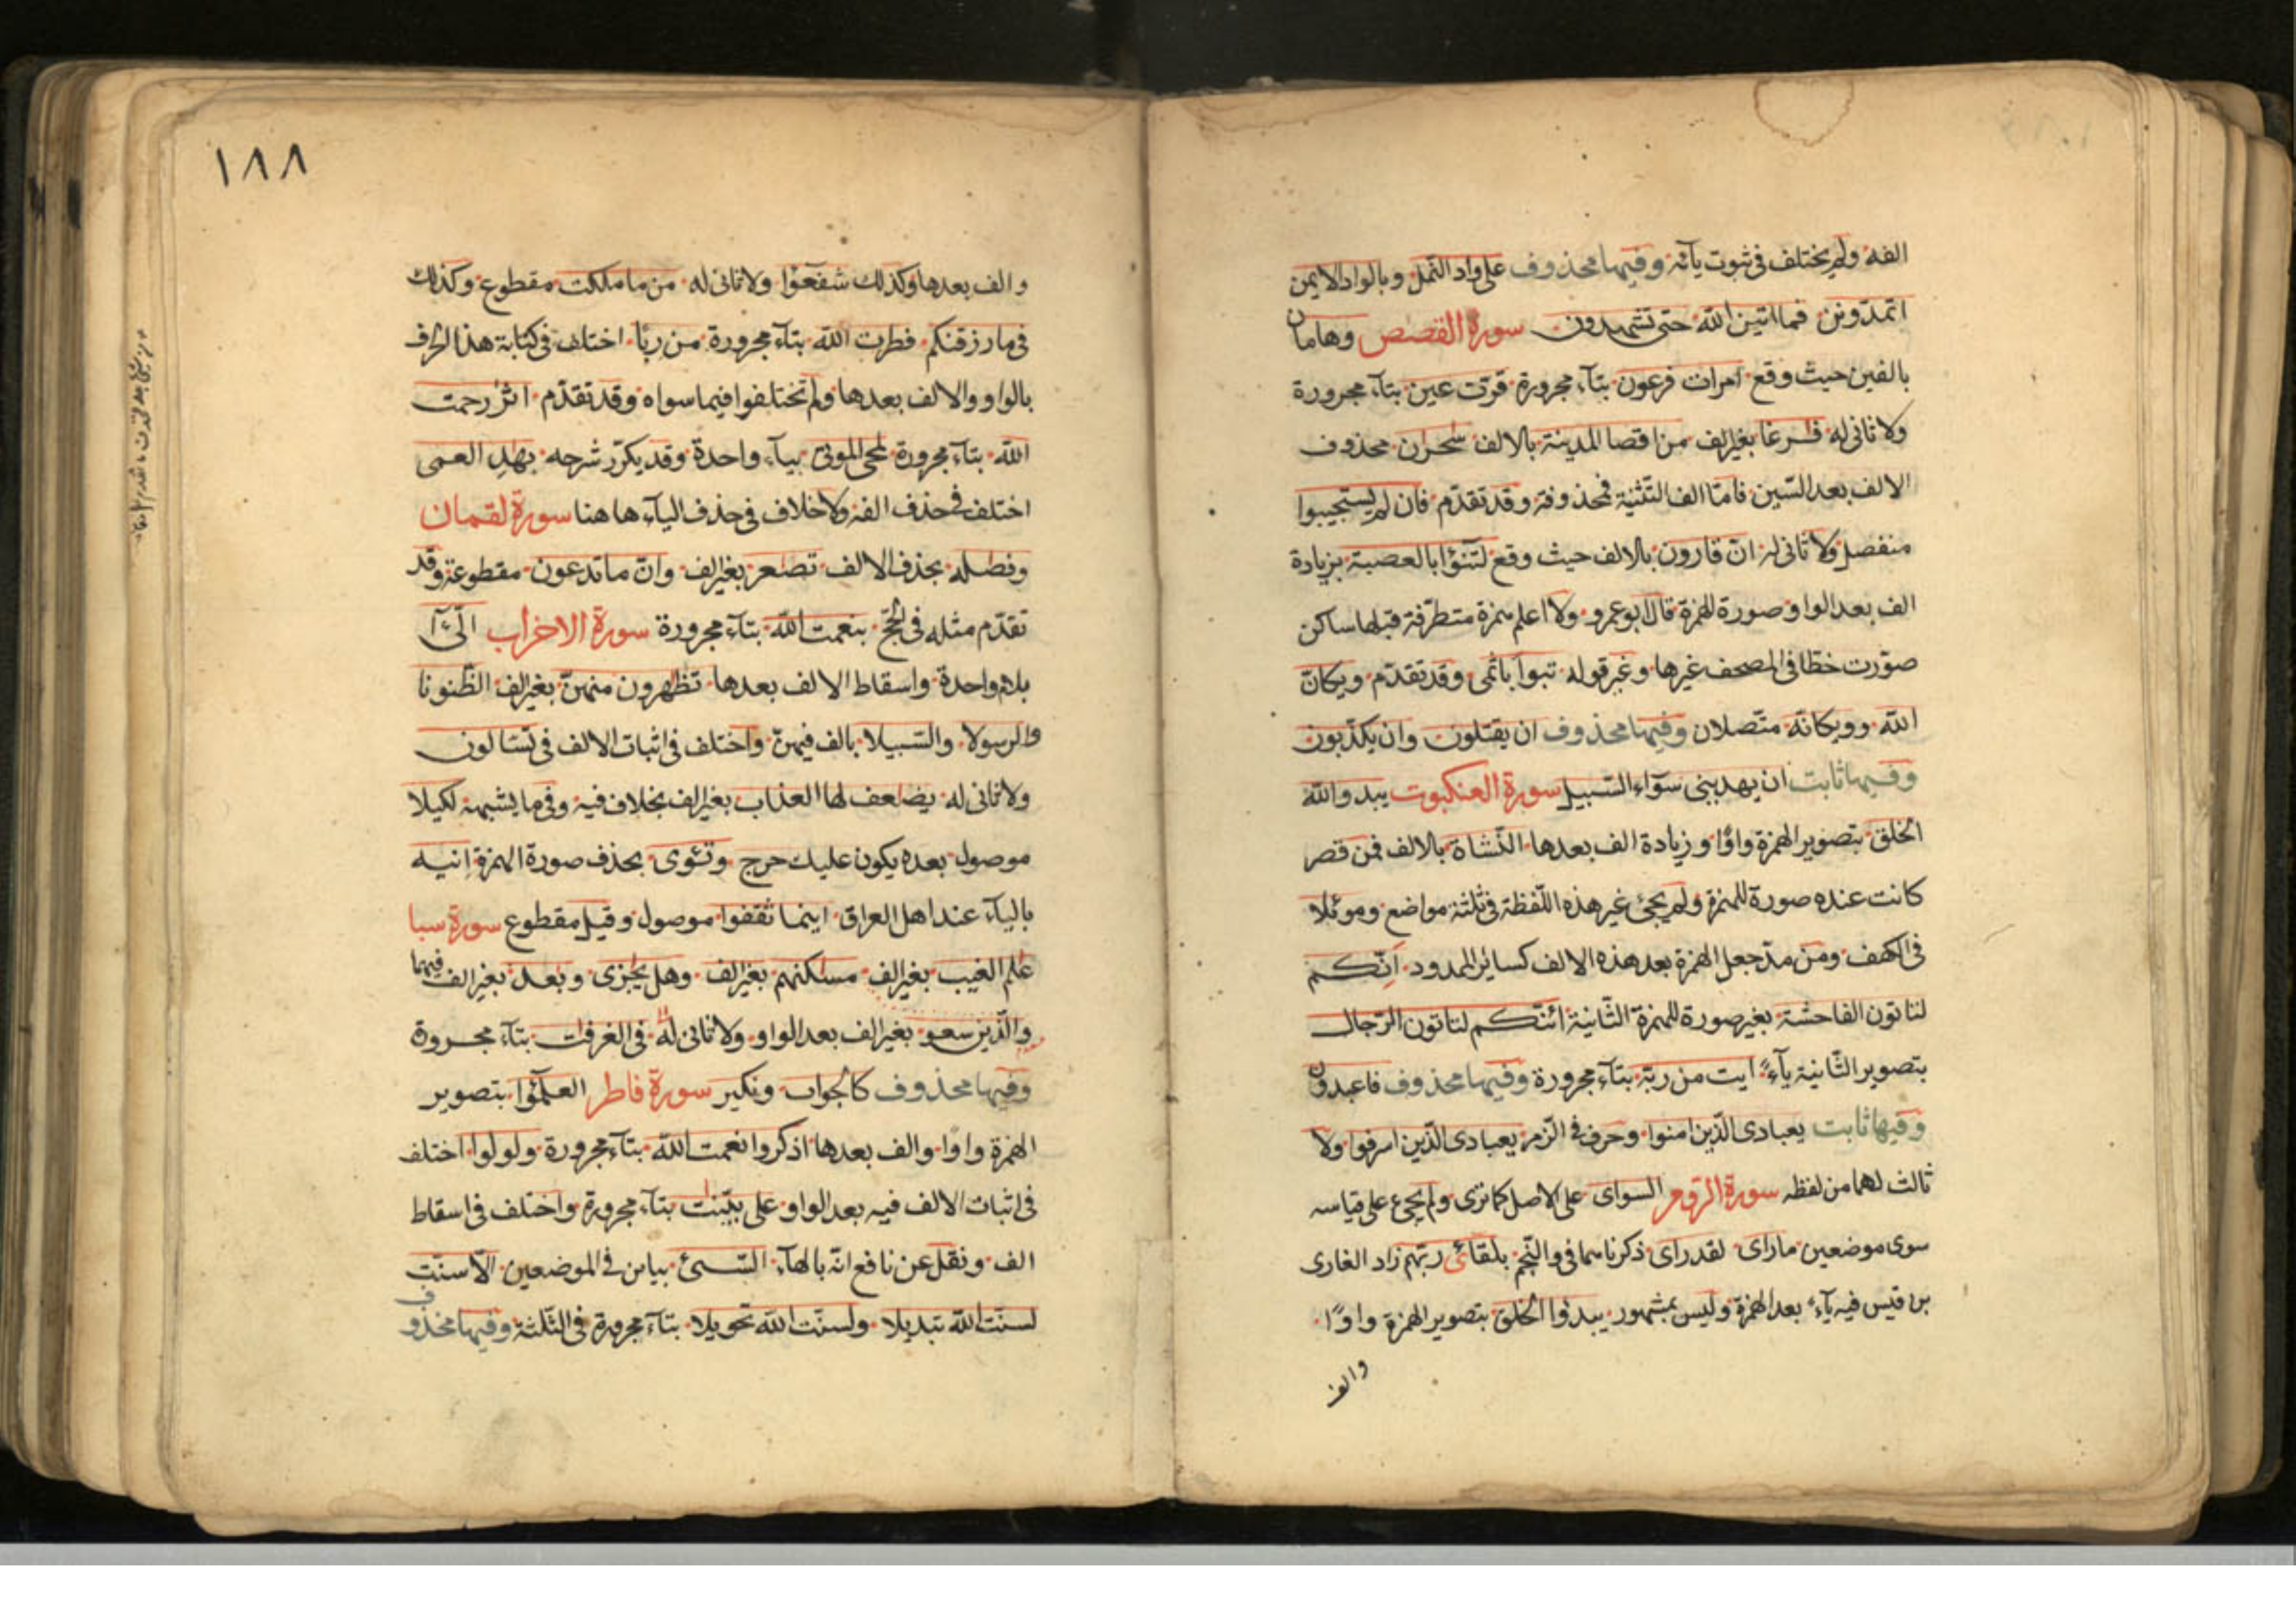 الفه ولم يختلف فى ثبوت يآئه وفيها محذوف على واد النمل وبالواد الايمن
اتمدّونن فما اتين الله حتى تشهدون سورة القصص وهامان
بالفين حيث وقع امرات فرعون بتآء مجرورة قرّت عين بتآء مجرورة
ولا ثانى له فرغا بغير الف من اقصا المدينة بالالف سحران محذوف
الالف بعد السّين فامّا الف التّثنية فمحذوفة وقد تقدّم فان لم يستجيبوا
منفصل ولا ثانى له انّ قارون بالالف حيث وقع لتنوٓأ بالعصبة بزيادة
الف بعد الواو صورة للهمزة قال ابو عمرو ولا اعلم همزة متطرّفة قبلها ساكن
صوّرت خطّا فى المصحف غيرها وغير قوله تبوأ باثمى وقد تقدّم ويكانّ
الله وويكانّه متّصلان وفيها محذوف ان يقتلون وان يكذّبون
وفيها ثابت ان يهدينى سوآء السّبيل سورة العنكبوت يبدو الله
الخلق بتصوير الهمزة واوًا وزيادة الف بعدها النّشاة بالالف فمن قصر
كانت عنده صورة للهمزة ولم يجئ غير هذه اللّفظة فى ثلثة مواضع وموئلا
فى الكهف ومن مدّ جعل الهمزة بعد هذه الالف كسائر الممدود اَئِنّكم
لتاتون الفاحشة بغير صورة للهمزة الثّانية ائنّكم لتاتون الرّجال
بتصوير الثّانية يآءً ايت من ربّه بتآء مجرورة وفيها محذوف فاعبدون
وفيها ثابت يعبادى الّذين امنوا وحرف فى الزّمر يعبادى الّذين اسرفوا ولا
ثالث لهما من لفظه سورة الرّوم السّواى على الاصل كما ترى ولم يجئ على قياسه
سوى موضعين ما راى لقد راى ذكرناهما فى والنّجم بلقائ ربّهم زاد الغازى
بن قيس فيه يآء بعد الهمزة وليس بمشهور يبدؤا الخلق بتصوير الهمزة واوًا
والف
١٨٨
والف بعدها وكذلك شفعؤا ولا ثانى له من ما ملكت مقطوع وكذلك
فى ما رزقنكم فطرت الله بتآء مجرورة من ربًا اختلف فى كتابة هذا الحرف
بالواو والالف بعدها ولم تختلفوا فيما سواه وقد تقدّم اثر رحمت
الله بتآء مجرورة لمحى الموتى بيآء واحدة وقد يكرّر شرحه بهد العمى
اختلف فى حذف الفه ولا خلاف فى حذف اليآء ها هنا سورة لقمان
وفصله بحذف الالف تصعر بغير الف وانّ ما تدعون مقطوعة وقد
تقدّم مثله فى الحجّ بنعمت الله بتآء مجرورة سورة الاحزاب الّئ
بلام واحدة واسقاط الالف بعدها تظهرون منهنّ بغير الف الظّنونا
والرسولا والسّبيلا بالف فيهنّ واختلف فى اثبات الالف فى تسالون
ولا ثانى له يضعف لها العذاب بغير الف بخلاف فيه وفى ما يشبهه لكيلا
موصول بعده يكون عليك حرج وتئوى بحذف صورة الهمزة انيه
باليآء عند اهل العراق اينما ثقفوا موصول وقيل مقطوع سورة سبا
علم الغيب بغير الف مسكنهم بغير الف وهل يجزى وبعد بغير الف فيهما
والّذين سعو بغير الف بعد الواو ولا ثانى له فى الغرفت بتآء مجرورة
وفيها محذوف كالجواب ونكير سورة فاطر العلمٓؤا بتصوير
الهمزة واوًا والف بعدها اذكروا نعمت الله بتآء مجرورة ولولوا اختلف
فى اثبات الالف فيه بعد الواو على بيّنت بتآء مجرورة واختلف فى اسقاط
الف ونقل عن نافع انّه بالهآء السّيئ بيائن فى الموضعين الّا سنّت
لسنّت الله تبديلا ولسنّت الله تحويلا بتآء مجرورة فى الثّلثة وفيها محذوف